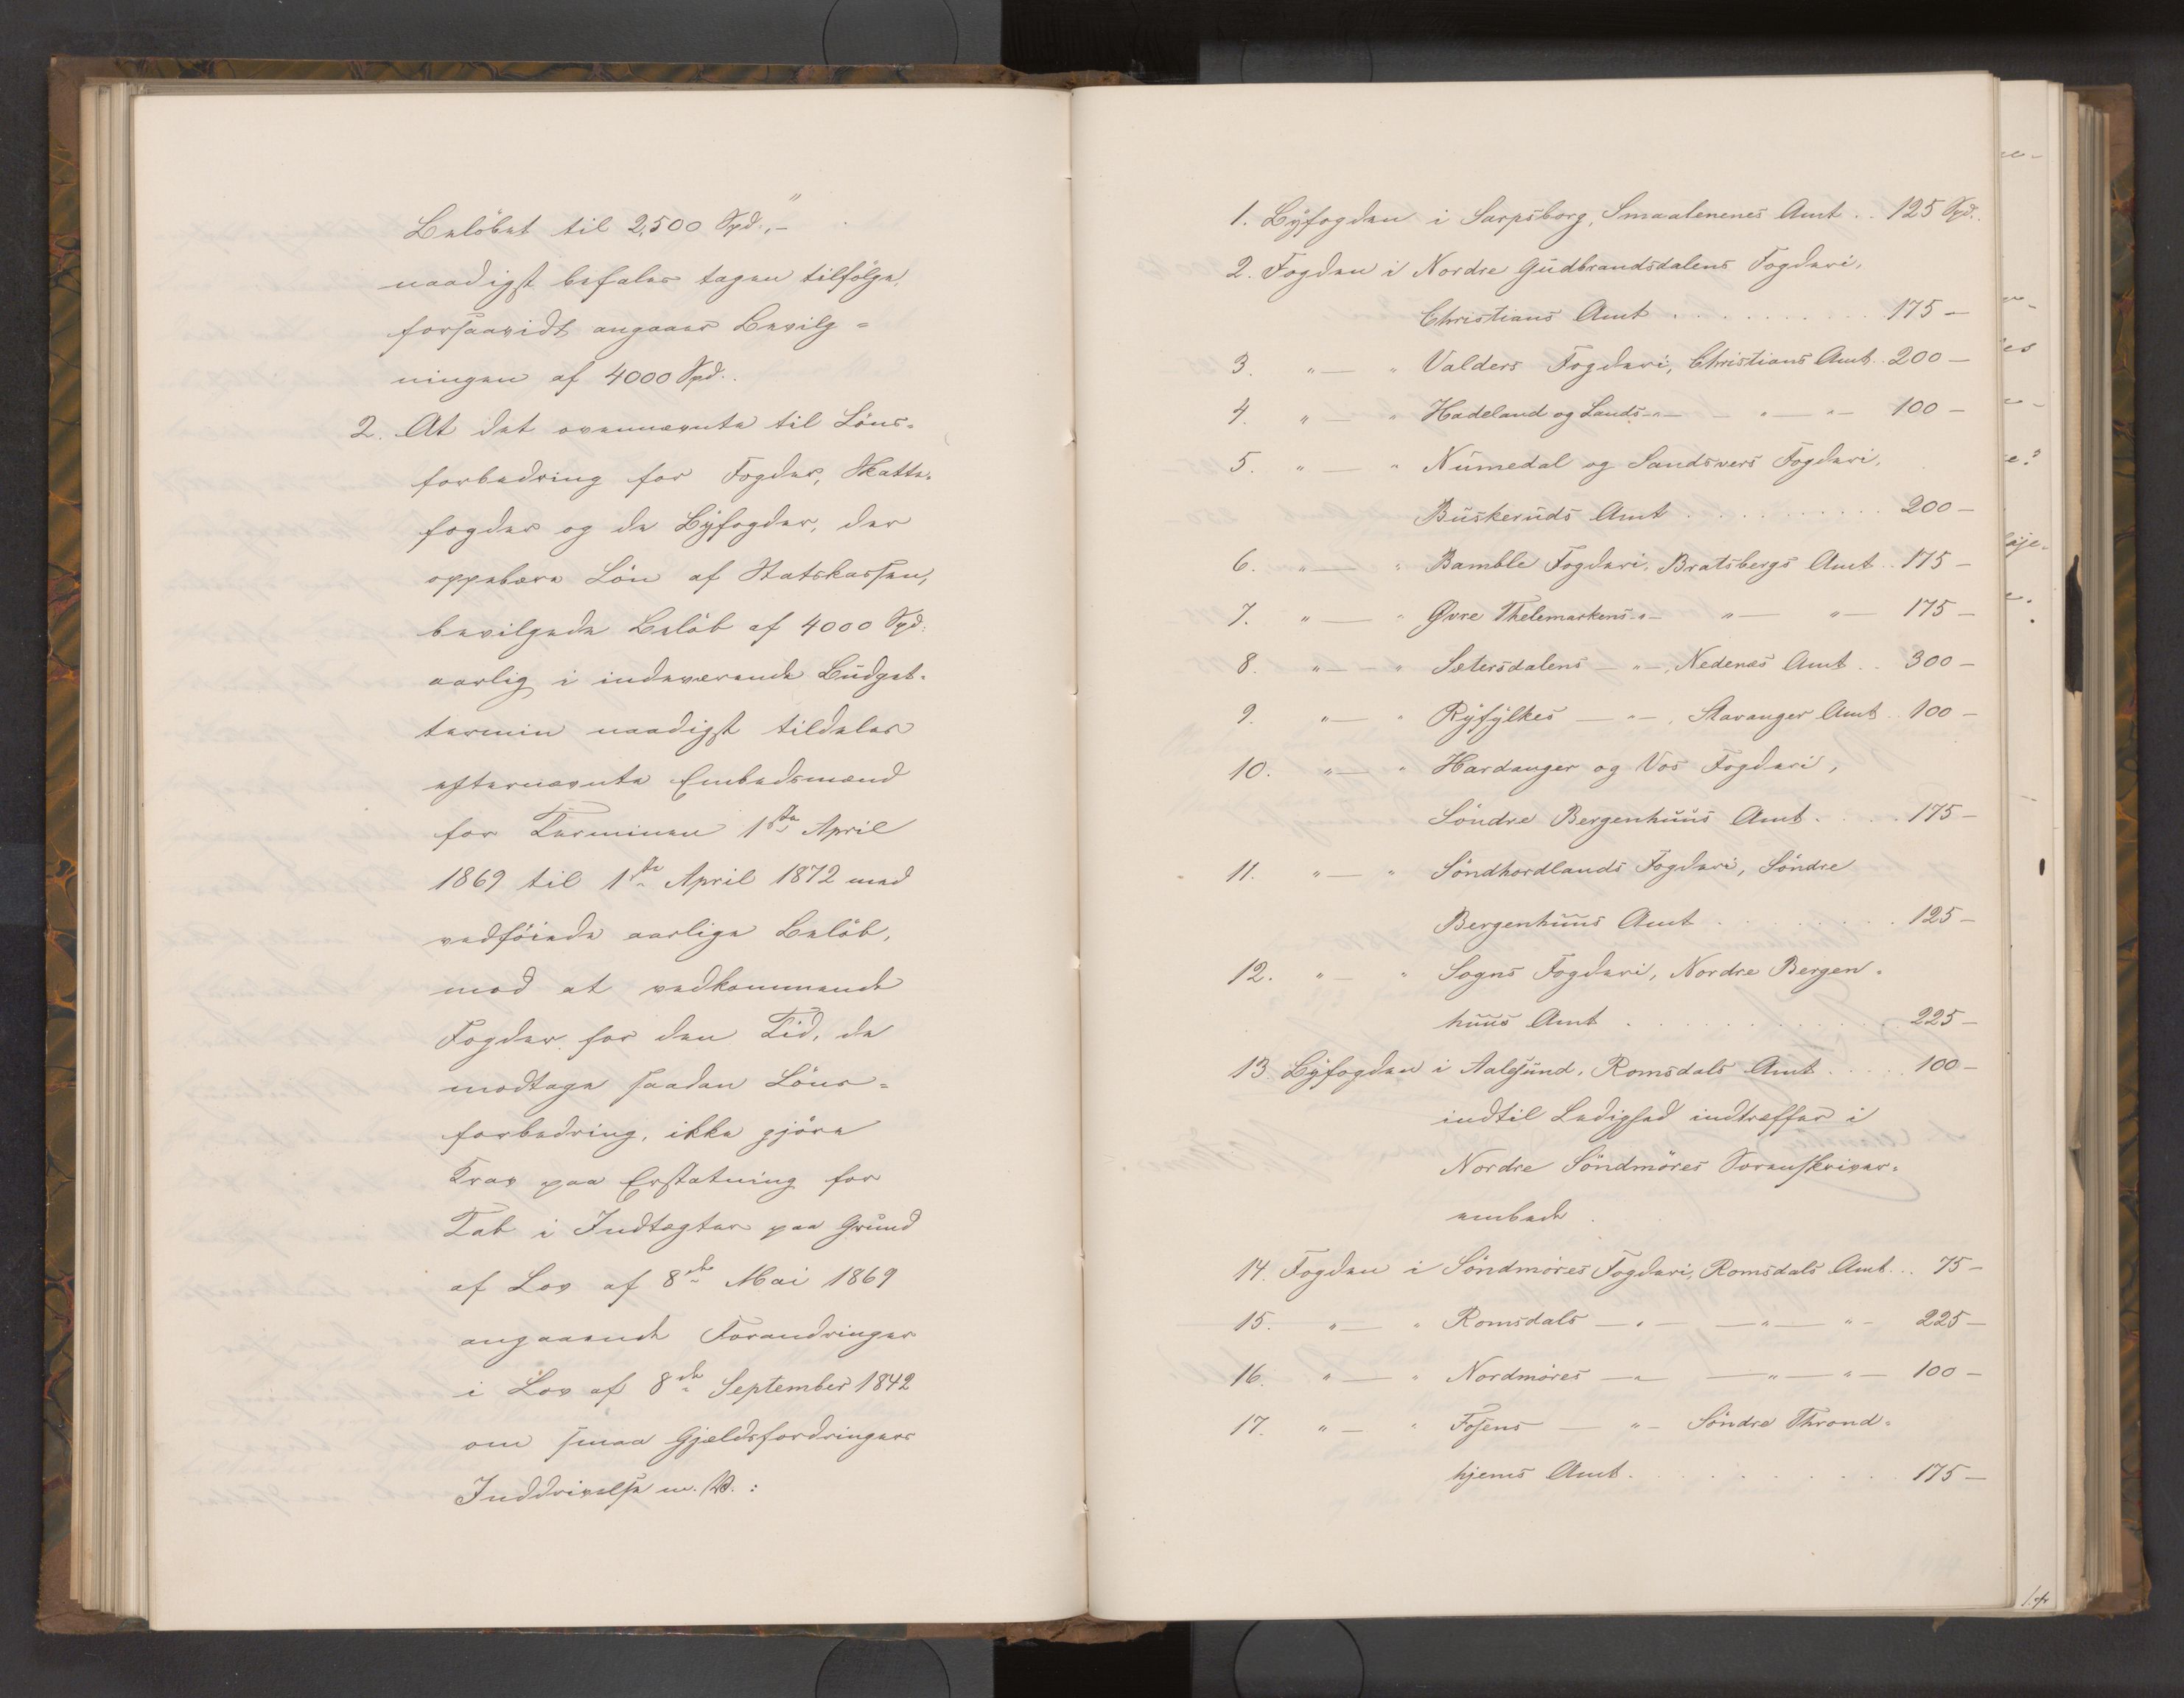 Beløbet til 2,500 Spd., –"
naadigst befales tagen tilfølge,
forsaavidt angaaer Bevilg=
ningen af 4000 Spd..
2. At det ovennævnte til Løns=
forbedring for Fogder, Skatte=
fogder og de Byfogder, der
oppebære Løn af Statskassen,
bevilgede Beløb af 4000 Spd.
aarlig i indeværende Budget=
termin naadigst tildeles
efternævnte Embedsmænd
for Terminen 1ste April
1869 til 1ste April 1872 med
vedføiede aarlige Beløb,
mod at vedkommende
Fogder for den Tid, de
modtage saadan Løns=
forbedring, ikke gjøre
Krav paa Erstatning for
Tab i Indtægter paa Grund
af Lov af 8de Mai 1869
angaaende Forandringer
i Lov af 8de September 1842
om smaa Gjældsfordringers
Inddrivelse m. V. :
1. Byfogden i Sarpsborg, Smaalenenes Amt .. 125 Spd.
2. Fogden i Nordre Gudbrandsdalens Fogderi,
Christians Amt . . . . . . . . . . 175 –
3. " — " Valders Fogderi, Christians Amt .. 200 –
4. " — " Hadeland og Lands –"– – " — " – 100 –
5. " — " Numedal og Sandsvers Fogderi,
Buskeruds Amt . . . . . . . . . . 200 –
6. " — " Bamble Fogderi, Bratsbergs Amt .. 175 –
7. " — " Øvre Thelemarkens –"– " — " — 175 –
8. " — " Sætersdalens — " –, Nedenæs Amt .. 300 –
9. " — " Ryfylkes — " –, Stavanger Amt .. 100 –
10. " — " Hardanger og Vos Fogderi,
Søndre Bergenhuus Amt . . . . 175 –
11. " — " Søndhordlands Fogderi, Søndre
Bergenhuus Amt . . . . . . . . 125 –
12. " — " Sogns Fogderi, Nordre Bergen=
huus Amt . . . . . . . . . . . 225 –
13. Byfogden i Aalesund, Romsdals Amt . . . . 100 –
indtil Ledighed indtræffer i
Nordre Søndmøres Sorenskriver=
embede.
14. Fogden i Søndmøres Fogderi, Romsdals Amt ... 75 –
15. " — " Romsdals — " – — " — " – 225 –
16. " — " Nordmøres — " – — " — " — 100 –
17. " — " Fosens — " – Søndre Thrond=
hjems Amt . . . . . . . . . 175 –